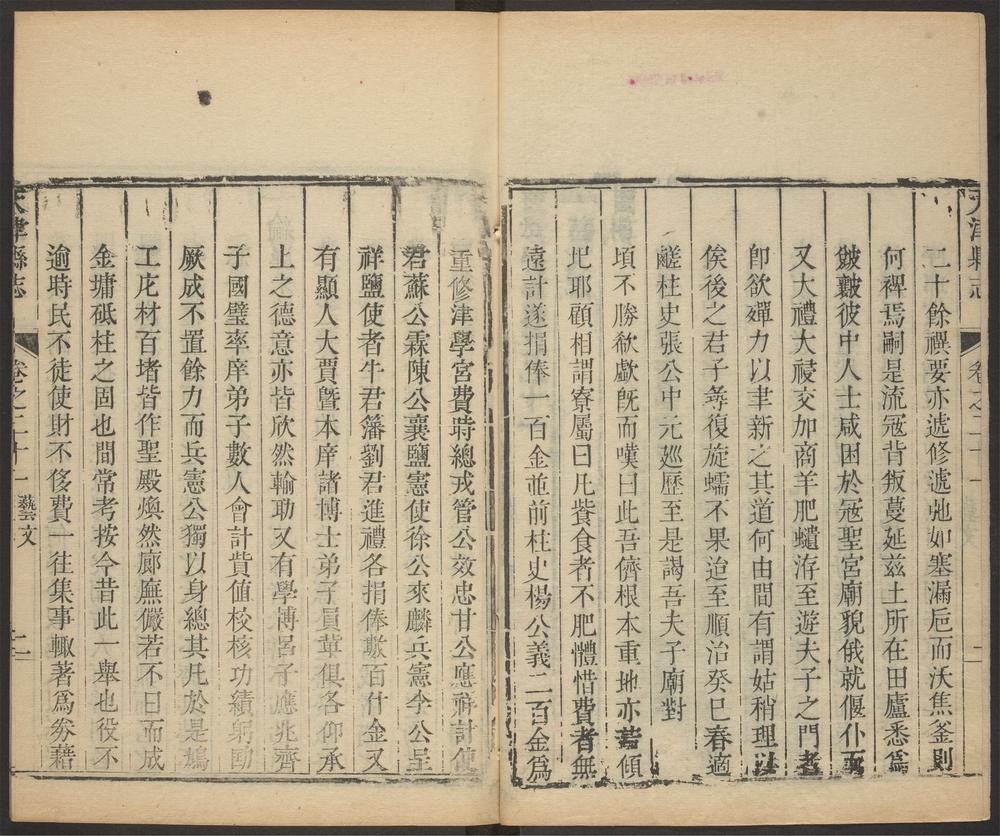 天津縣志
卷之二十一
二
二十餘禩要亦遞修遞弛如塞漏卮而沃焦釜則
何裨焉嗣是流冦背叛蔓延茲土所在田廬悉爲
皴皽彼中人士咸困於冦聖宮廟貌俄就偃仆而
又大禮大祲交加商羊肥蟣洊至遊夫子之門者
卽欲嬋力以聿新之其道何由間有謂姑稍理以
俟後之君子尋復旋蠕不果迨至順治癸巳春適
鹺柱史張公中元廵歷至是謁吾夫子廟對
頃不勝欷歔旣而嘆曰此吾儕根本重地亦若傾
圯耶顧相謂寮屬曰凡飺食者不肥體惜費者無
遠計遂捐俸一百金並前柱史楊公義二百金爲
重修津學宮費時總戎管公效忠甘公應祥計使
君蘇公霖陳公襄鹽憲使徐公來麟兵憲李公呈
祥鹽使者牛君籓劉君進禮各捐俸數百什金又
有顯人大賈曁本庠諸博士弟子員軰俱各仰承
上之德意亦皆欣然輸助又有學博呂子應兆齊
子國璧率庠弟子數人會計貲值校核功績躬勖
厥成不置餘力而兵憲公獨以身總其凡於是鳩
工庀材百堵皆作聖殿煥然廊廡儼若不日而成
金墉砥柱之固也間常考按今昔此一舉也役不
逾時民不徒使財不侈費一往集事輙著爲劵藉
天津縣志
卷之二十一
藝文
二